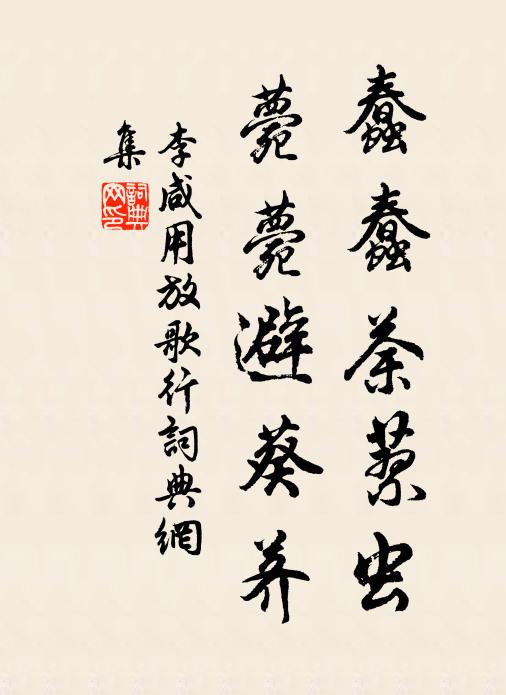 蠢蠢荼蓼虫
薨薨避葵荠
李咸用放歌行詞典網
集
詞典
网印